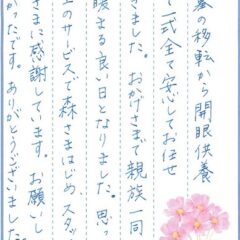 墓の移転から開眼供養
て一式全て安心してお任せ
きました。おかげさまで親族一同
暖まる良い日となりました。思っ
上のサービスで森さまはじめ、スタッ
さまに感謝しています。お願いし
かったです。ありがとうございました